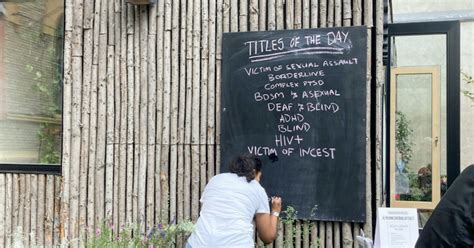 TITLES OF THE DAY
VICTIM OF SEXUAL ASSAULT
BORDERLINE
COMPLEX PTSD
BDSM & ASEXUAL
DEAF & BLIND
ADHD
BLIND
HIV+
VICTIM OF INCEST